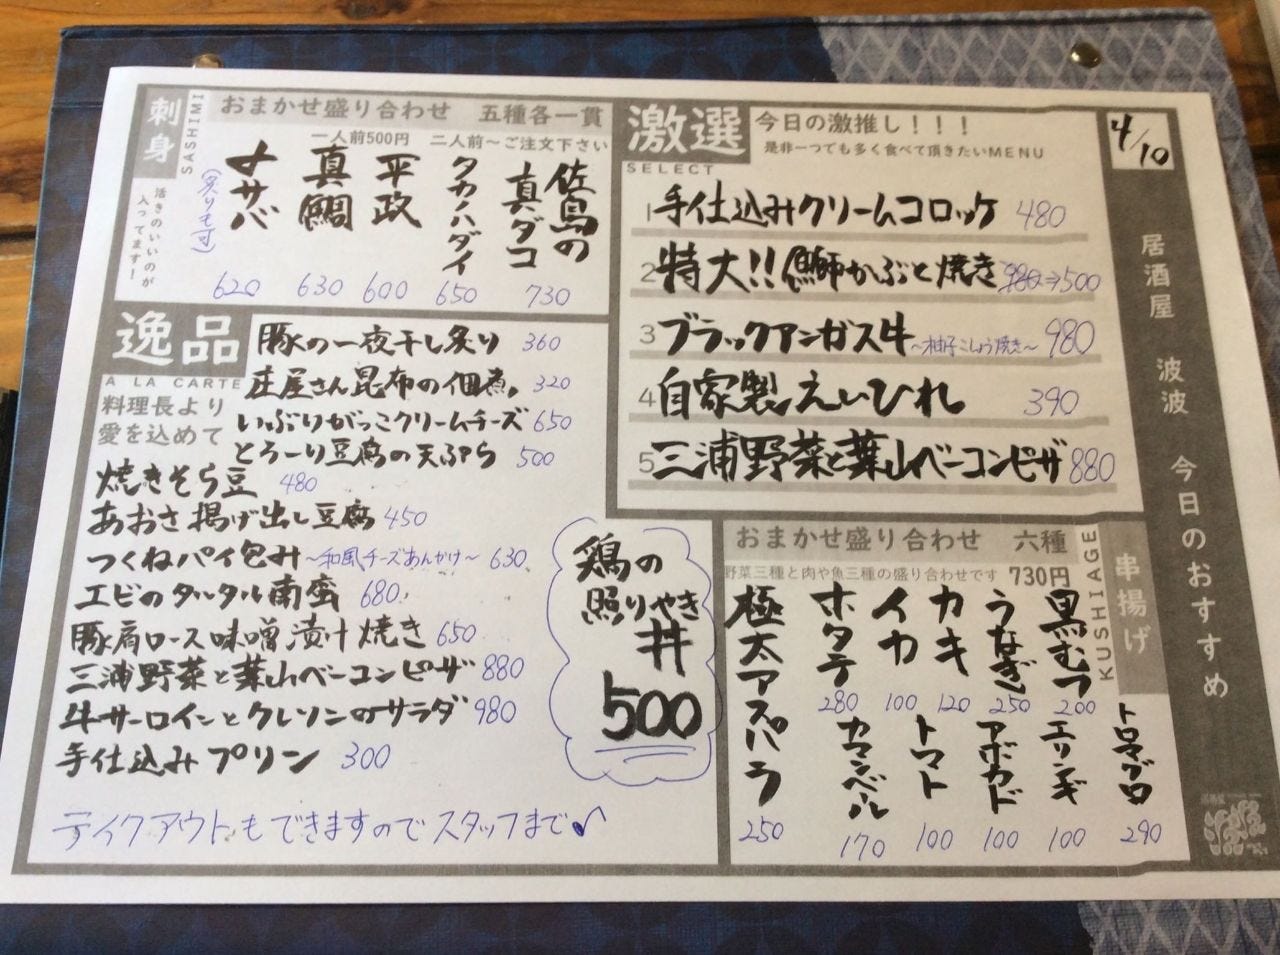 刺身
SASHIMI
活きのいいのが
入ってます!
おまかせ盛り合わせ 五種各一貫
一人前500円 二人前〜ご注文下さい
佐島の
真ダコ
730
タカノハダイ
650
平政
600
真鯛
630
〆サバ
(炙りも可)
620
激選
SELECT
今日の激推し!!!
是非一つでも多く食べて頂きたいMENU
1 手仕込みクリームコロッケ 480
2 特大!!鰤かぶと焼き 980⇒500
3 ブラックアンガス牛 〜柚子こしょう焼き〜 980
4 自家製えいひれ 390
5 三浦野菜と葉山ベーコンピザ 880
4/10
居酒屋 波波 今日のおすすめ
逸品
A LA CARTE
料理長より
愛を込めて
豚の一夜干し炙り 360
庄屋さん昆布の佃煮 320
いぶりがっこクリームチーズ 650
とろーり豆腐の天ぷら 500
焼きそら豆 480
あおさ揚げ出し豆腐 450
つくねパイ包み 〜和風チーズあんかけ〜 630
エビのタルタル南蛮 680
豚肩ロース味噌漬け焼き 650
三浦野菜と葉山ベーコンピザ 880
牛サーロインとクレソンのサラダ 980
手仕込みプリン 300
テイクアウトもできますのでスタッフまで♪
鶏の
照りやき
丼
500
串揚げ
KUSHIAGE
おまかせ盛り合わせ 六種
野菜三種と肉や魚三種の盛り合わせです 730円
黒むつ
200
うなぎ
250
カキ
120
イカ
100
ホタテ
280
極太アスパラ
250
トロマグロ
290
エリンギ
100
アボカド
100
トマト
100
カマンベール
170